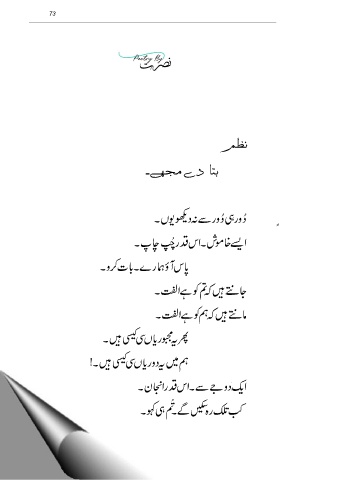 73
Poetry By
نصرت
نظم
بتا دے مجھے۔
دُور ہی دُور سے نہ دیکھو یوں۔
ایسے خاموش۔ اس قدر چُپ چاپ۔
پاس آؤ ہمارے۔ بات کرو۔
جانتے ہیں کہ تم کو ہے الفت۔
مانتے ہیں کہ ہم کو ہے الفت۔
پھر یہ مجبوریاں سی کیسی ہیں۔
ہم میں یہ دوریاں سی کیسی ہیں۔!
ایک دوجے سے۔ اس قدر انجان۔
کب تلک رہ سکیں گے۔ تُم ہی کہو۔